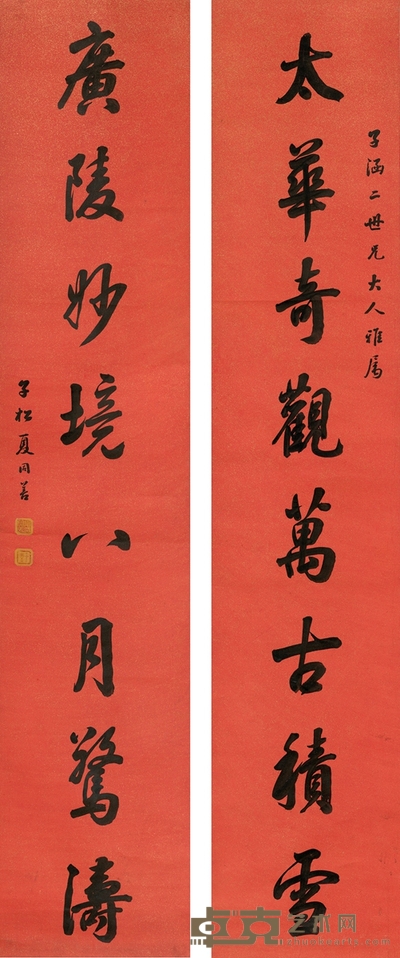 子涵二世兄大人雅属
太華奇觀萬古積雪
廣陵妙境八月驚濤
子松夏同善
点克艺术网